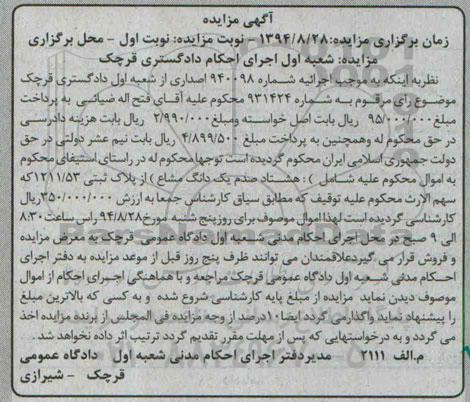 آگهی مزایده
زمان برگزاری مزایده: ۱۳۹۴/۸/۲۸ - نوبت مزایده: نوبت اول - محل برگزاری
مزایده: شعبه اول اجرای احکام دادگستری قرچک
نظر به اینکه به موجب اجرائیه شماره ۹۴۰۰۹۸ اصداری از شعبه اول دادگستری قرچک
موضوع رای مرقوم به شماره ۹۳۱۴۲۴ محکوم علیه آقای فتح اله ضیائی به پرداخت
مبلغ ۹۵/۰۰۰/۰۰۰ ریال بابت اصل خواسته ومبلغ ۲/۹۹۰/۰۰۰ ریال بابت هزینه دادرسی
در حق محکوم له وهمچنین به پرداخت مبلغ ۴/۸۹۹/۵۰۰ ریال بابت نیم عشر دولتی در حق
دولت جمهوری اسلامی ایران محکوم گردیده است توجها محکوم له در راستای استیفای محکوم
به اموال محکوم علیه شامل ) : هشتاد صدم یک دانگ مشاع ) از پلاک ثبتی ۱۲۱۱/۵۳ که
سهم الارث محکوم علیه توقیف که مطابق سیاق کارشناس جمعا به ارزش ۳۵۰/۰۰۰/۰۰۰ ریال
کارشناسی گردیده است لهذا اموال موصوف برای روز پنج شنبه مورخ ۹۴/۸/۲۸ راس ساعت ۸:۳۰
الی ۹ صبح در محل اجرای احکام مدنی شعبه اول دادگاه عمومی قرچک به معرض مزایده
و فروش قرار می گیرد علاقمندان می توانند ظرف پنج روز قبل از موعد مزایده به دفتر اجرای
احکام مدنی شعبه اول دادگاه عمومی قرچک مراجعه و با هماهنگی اجرای احکام از اموال
موصوف دیدن نماید مزایده از مبلغ پایه کارشناسی شروع شده و به کسی که بالاترین مبلغ
را پیشنهاد نماید واگذار می گردد ایضا ۱۰ درصد از وجه مزایده فی المجلس از برنده مزایده اخذ
می گردد و به درخواستهایی که پس از مهلت مقرر تقدیم گردد ترتیب اثر داده نخواهد شد.
م.الف ۲۱۱۱ مدیر دفتر اجرای احکام مدنی شعبه اول دادگاه عمومی
قرچک - شیرازی